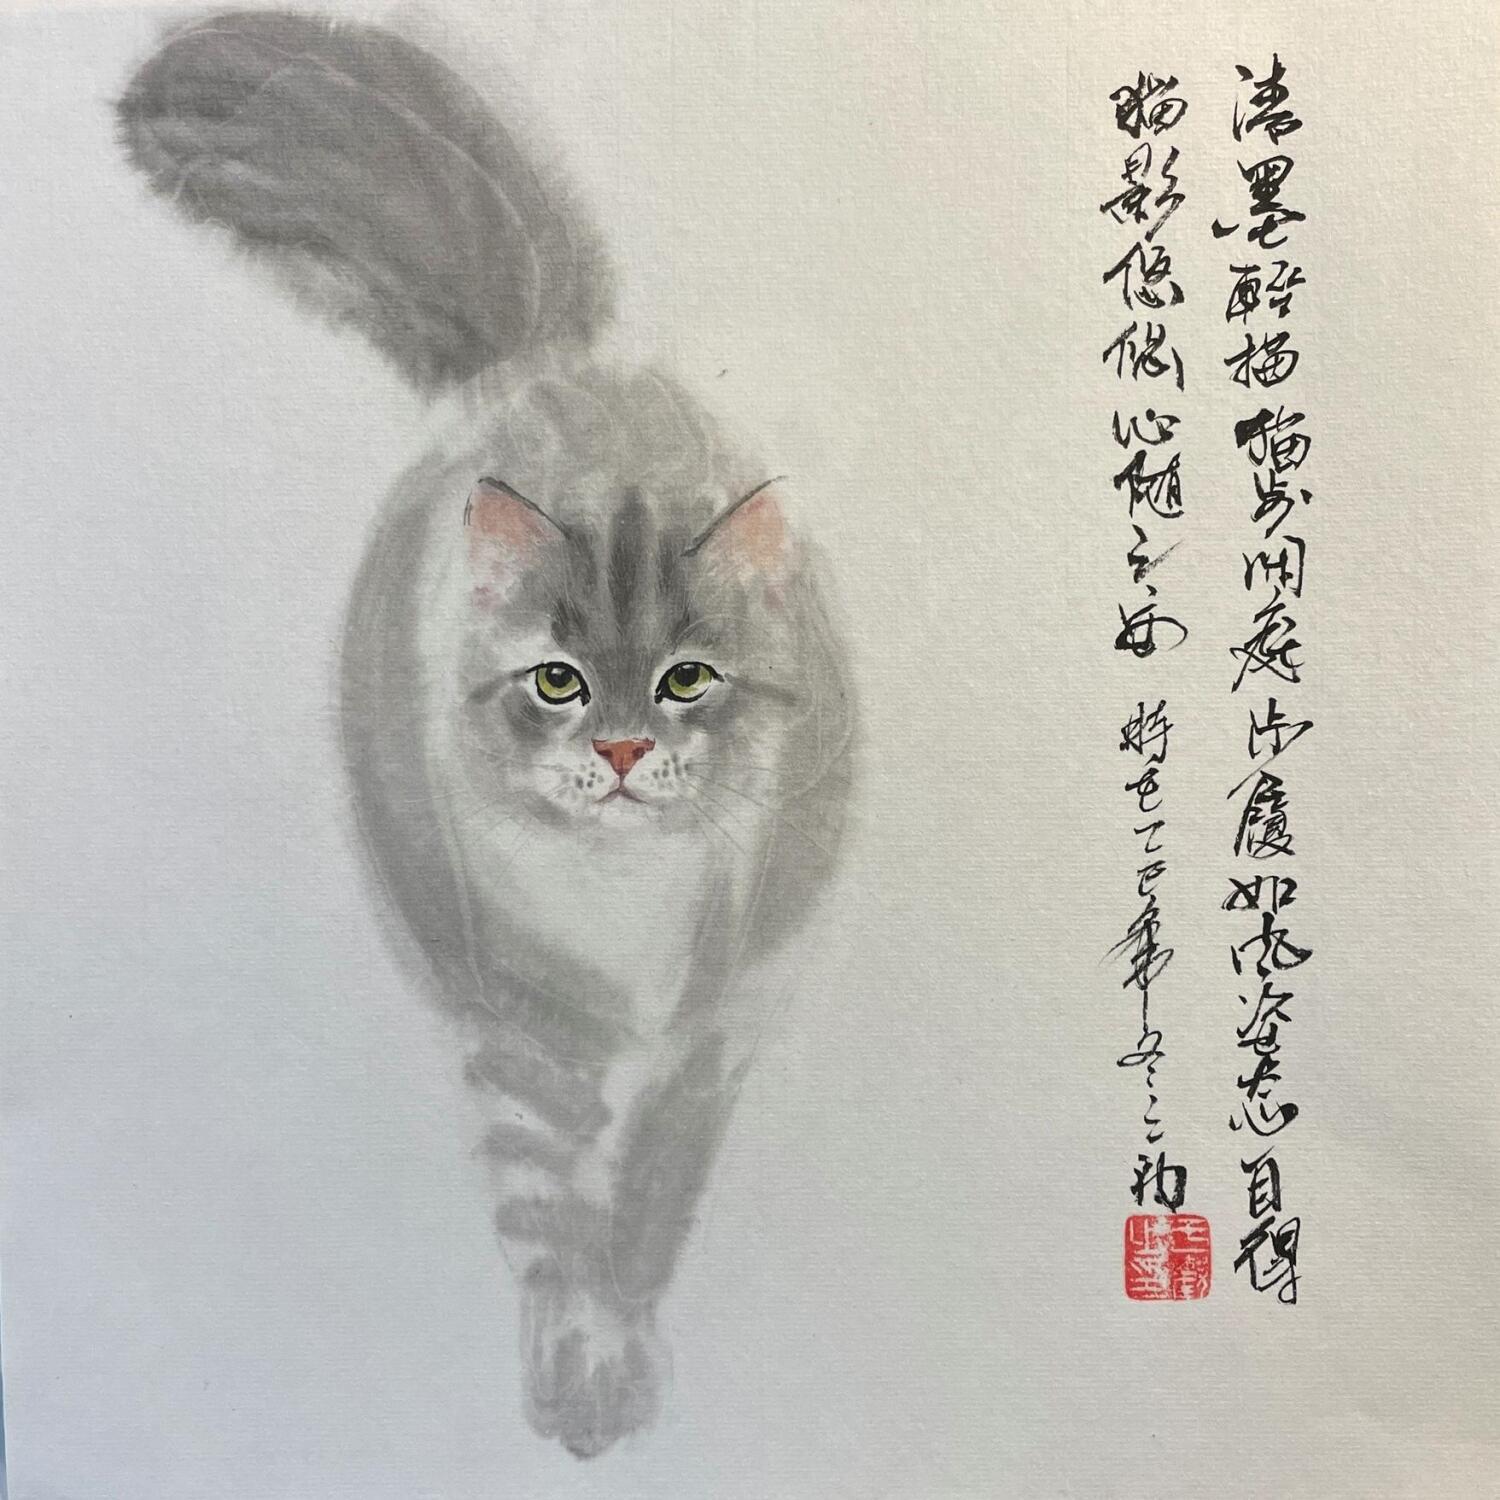 清墨輕描猫步闲庭步履如风姿态自得
猫影悠悠心随之安 时在乙巳年冬